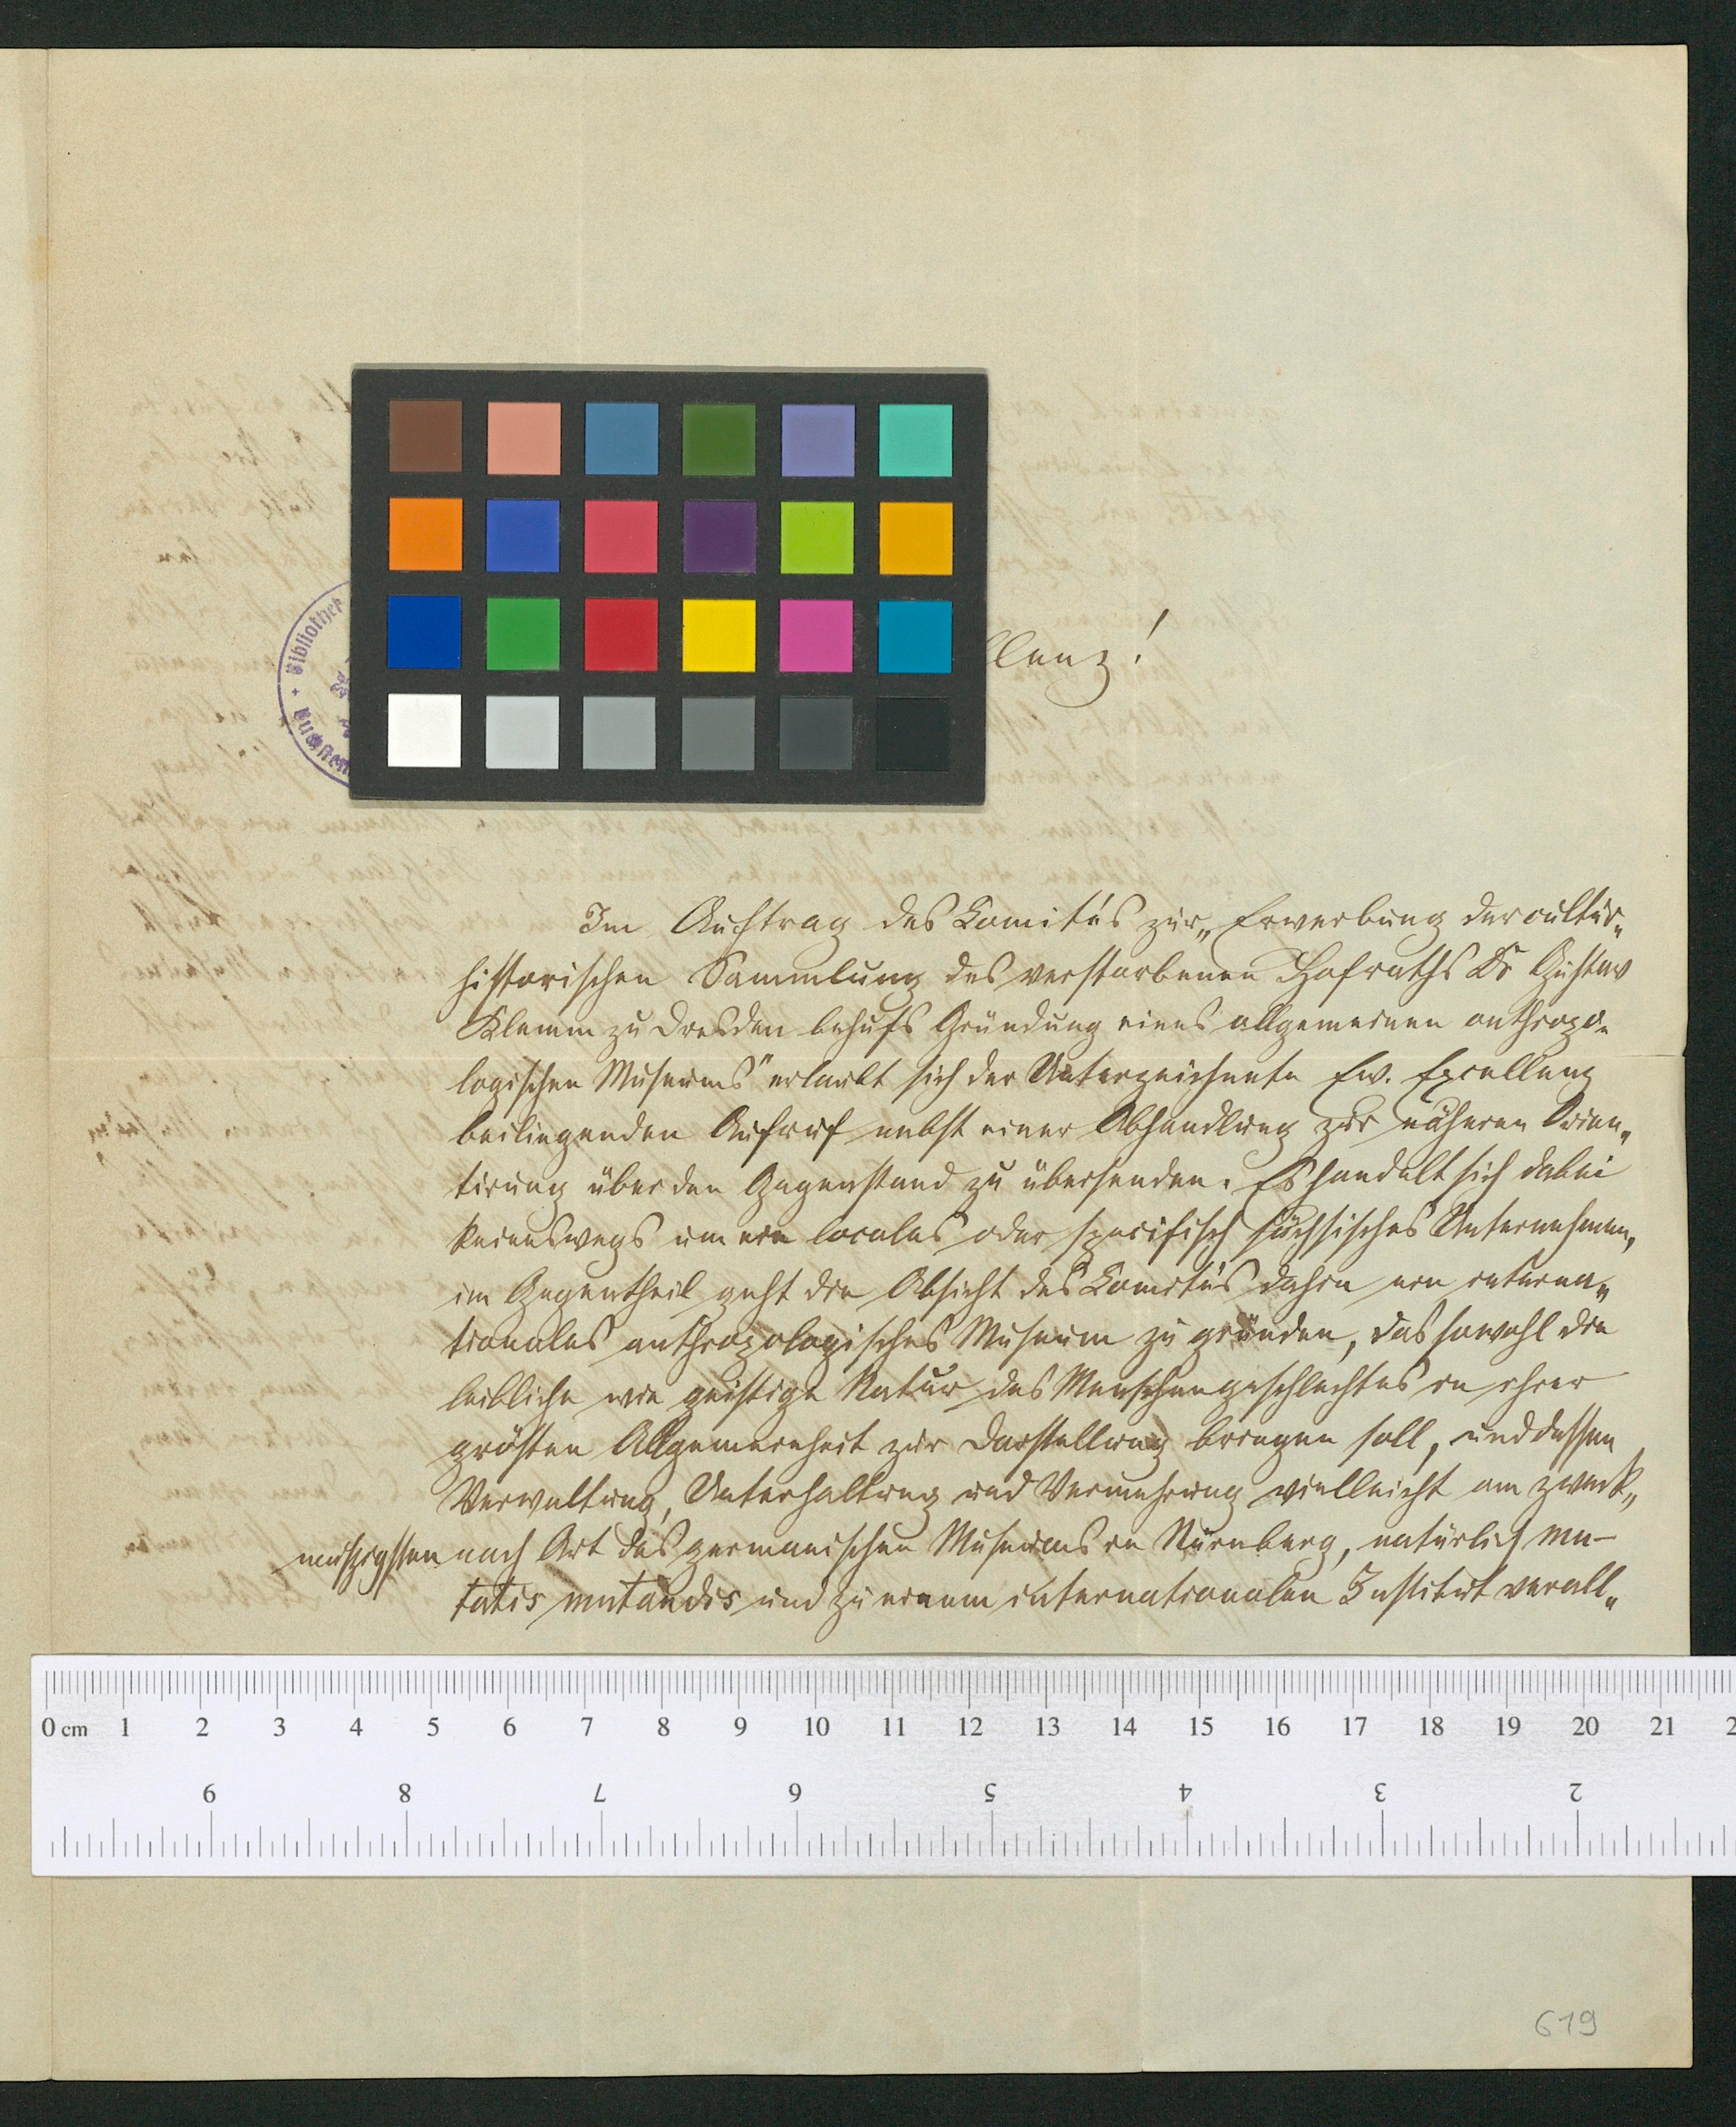 llenz!
Im Auftrag des Comités zur „Erwerbung der cultur„
historischen Sammlung des verstorbenen Hofraths Dr Gustav
Klemm zu Dresden behufs Gründung eines allgemeinen anthropo„
logischen Museums" erlaubt sich der Unterzeichnete Ew. Excellenz
beiliegenden Aufruf nebst einer Abhandlung zur näheren Orien„
tirung über den Gegenstand zu übersenden. Es handelt sich dabei
keineswegs um ein locales oder specifisch sächsisches Unternehmen,
im Gegentheil geht die Absicht des Comités dahin ein interna„
tionales anthropologisches Museum zu gründen, das sowohl die
leibliche wie geistige Natur des Menschengeschlechtes in ihrer
grösten Allgemeinheit zur Darstellung bringen soll, und dessen
Verwaltung, Unterhaltung und Vermehrung vielleicht am zweck„
mäszigsten nach Art des germanischen Museums in Nürnberg, natürlich mu-
tatis mutandis und zu einem internationalen Institut verall„
Bibliothek
0 cm 1 2 3 4 5 6 7 8 9 10 11 12 13 14 15 16 17 18 19 20 21 2
9 8 7 6 5 4 3 2
619